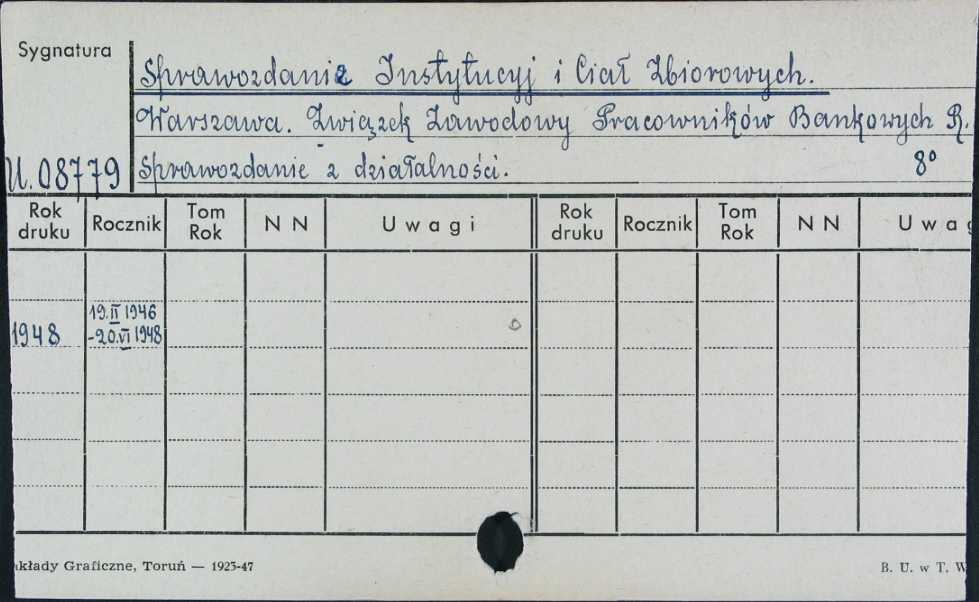 Sygnatura
Sprawozdania Instytucyj i Ciał Zbiorowych.
Warszawa. Związek Zawodowy Pracowników Bankowych R.
U.08779 Sprawozdanie z działalności. 8°
Rok druku Rocznik Tom Rok N N Uwagi Rok druku Rocznik Tom Rok N N Uwag
19.II 1946
1948 -20.VI 1948
kłady Graficzne, Toruń — 1923-47 B. U. w T. W